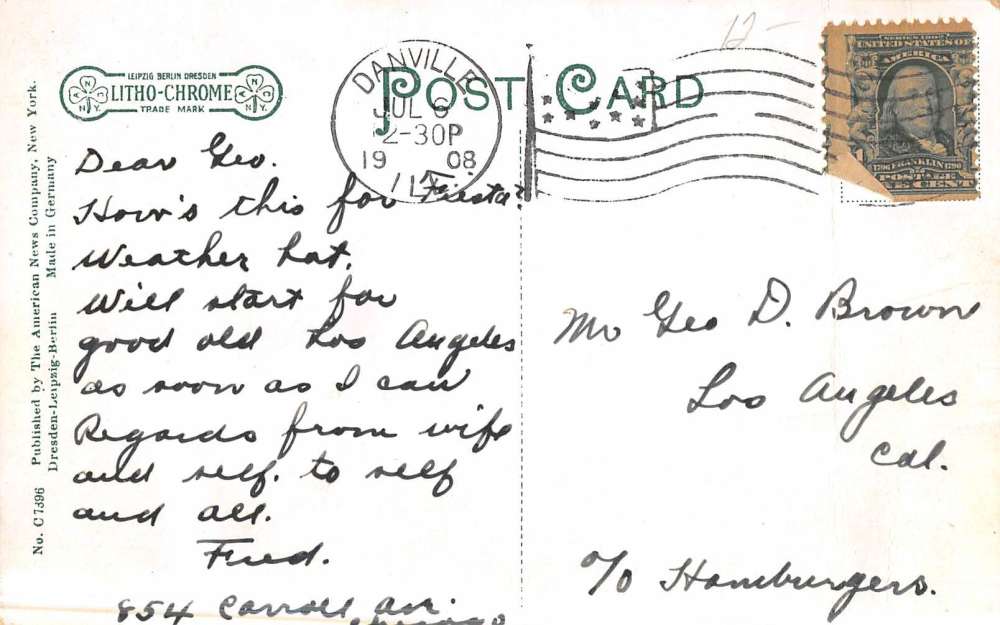 12-
POST CARD
LEIPZIG BERLIN DRESDEN
LITHO-CHROME
TRADE MARK
N
N.Y.
N
N.Y.
DANVILLE
JUL 6
2-30P
19 08
ILL.
SERIES 1902
UNITED STATES OF
AMERICA
1706 FRANKLIN 1790
POSTAGE
ONE CENT
No. C7396 Published by The American News Company, New York.
Dresden-Leipzig-Berlin Made in Germany
Dear Geo.
How's this for "Fiesta"?
Weather hot.
Will start for
good old Los Angeles
as soon as I can
Regards from wife
and self. to self
and all.
Fred.
854 Carroll Av.
Chicago
Mr Geo D. Brown
Los Angeles
Cal.
c/o Hamburgers.